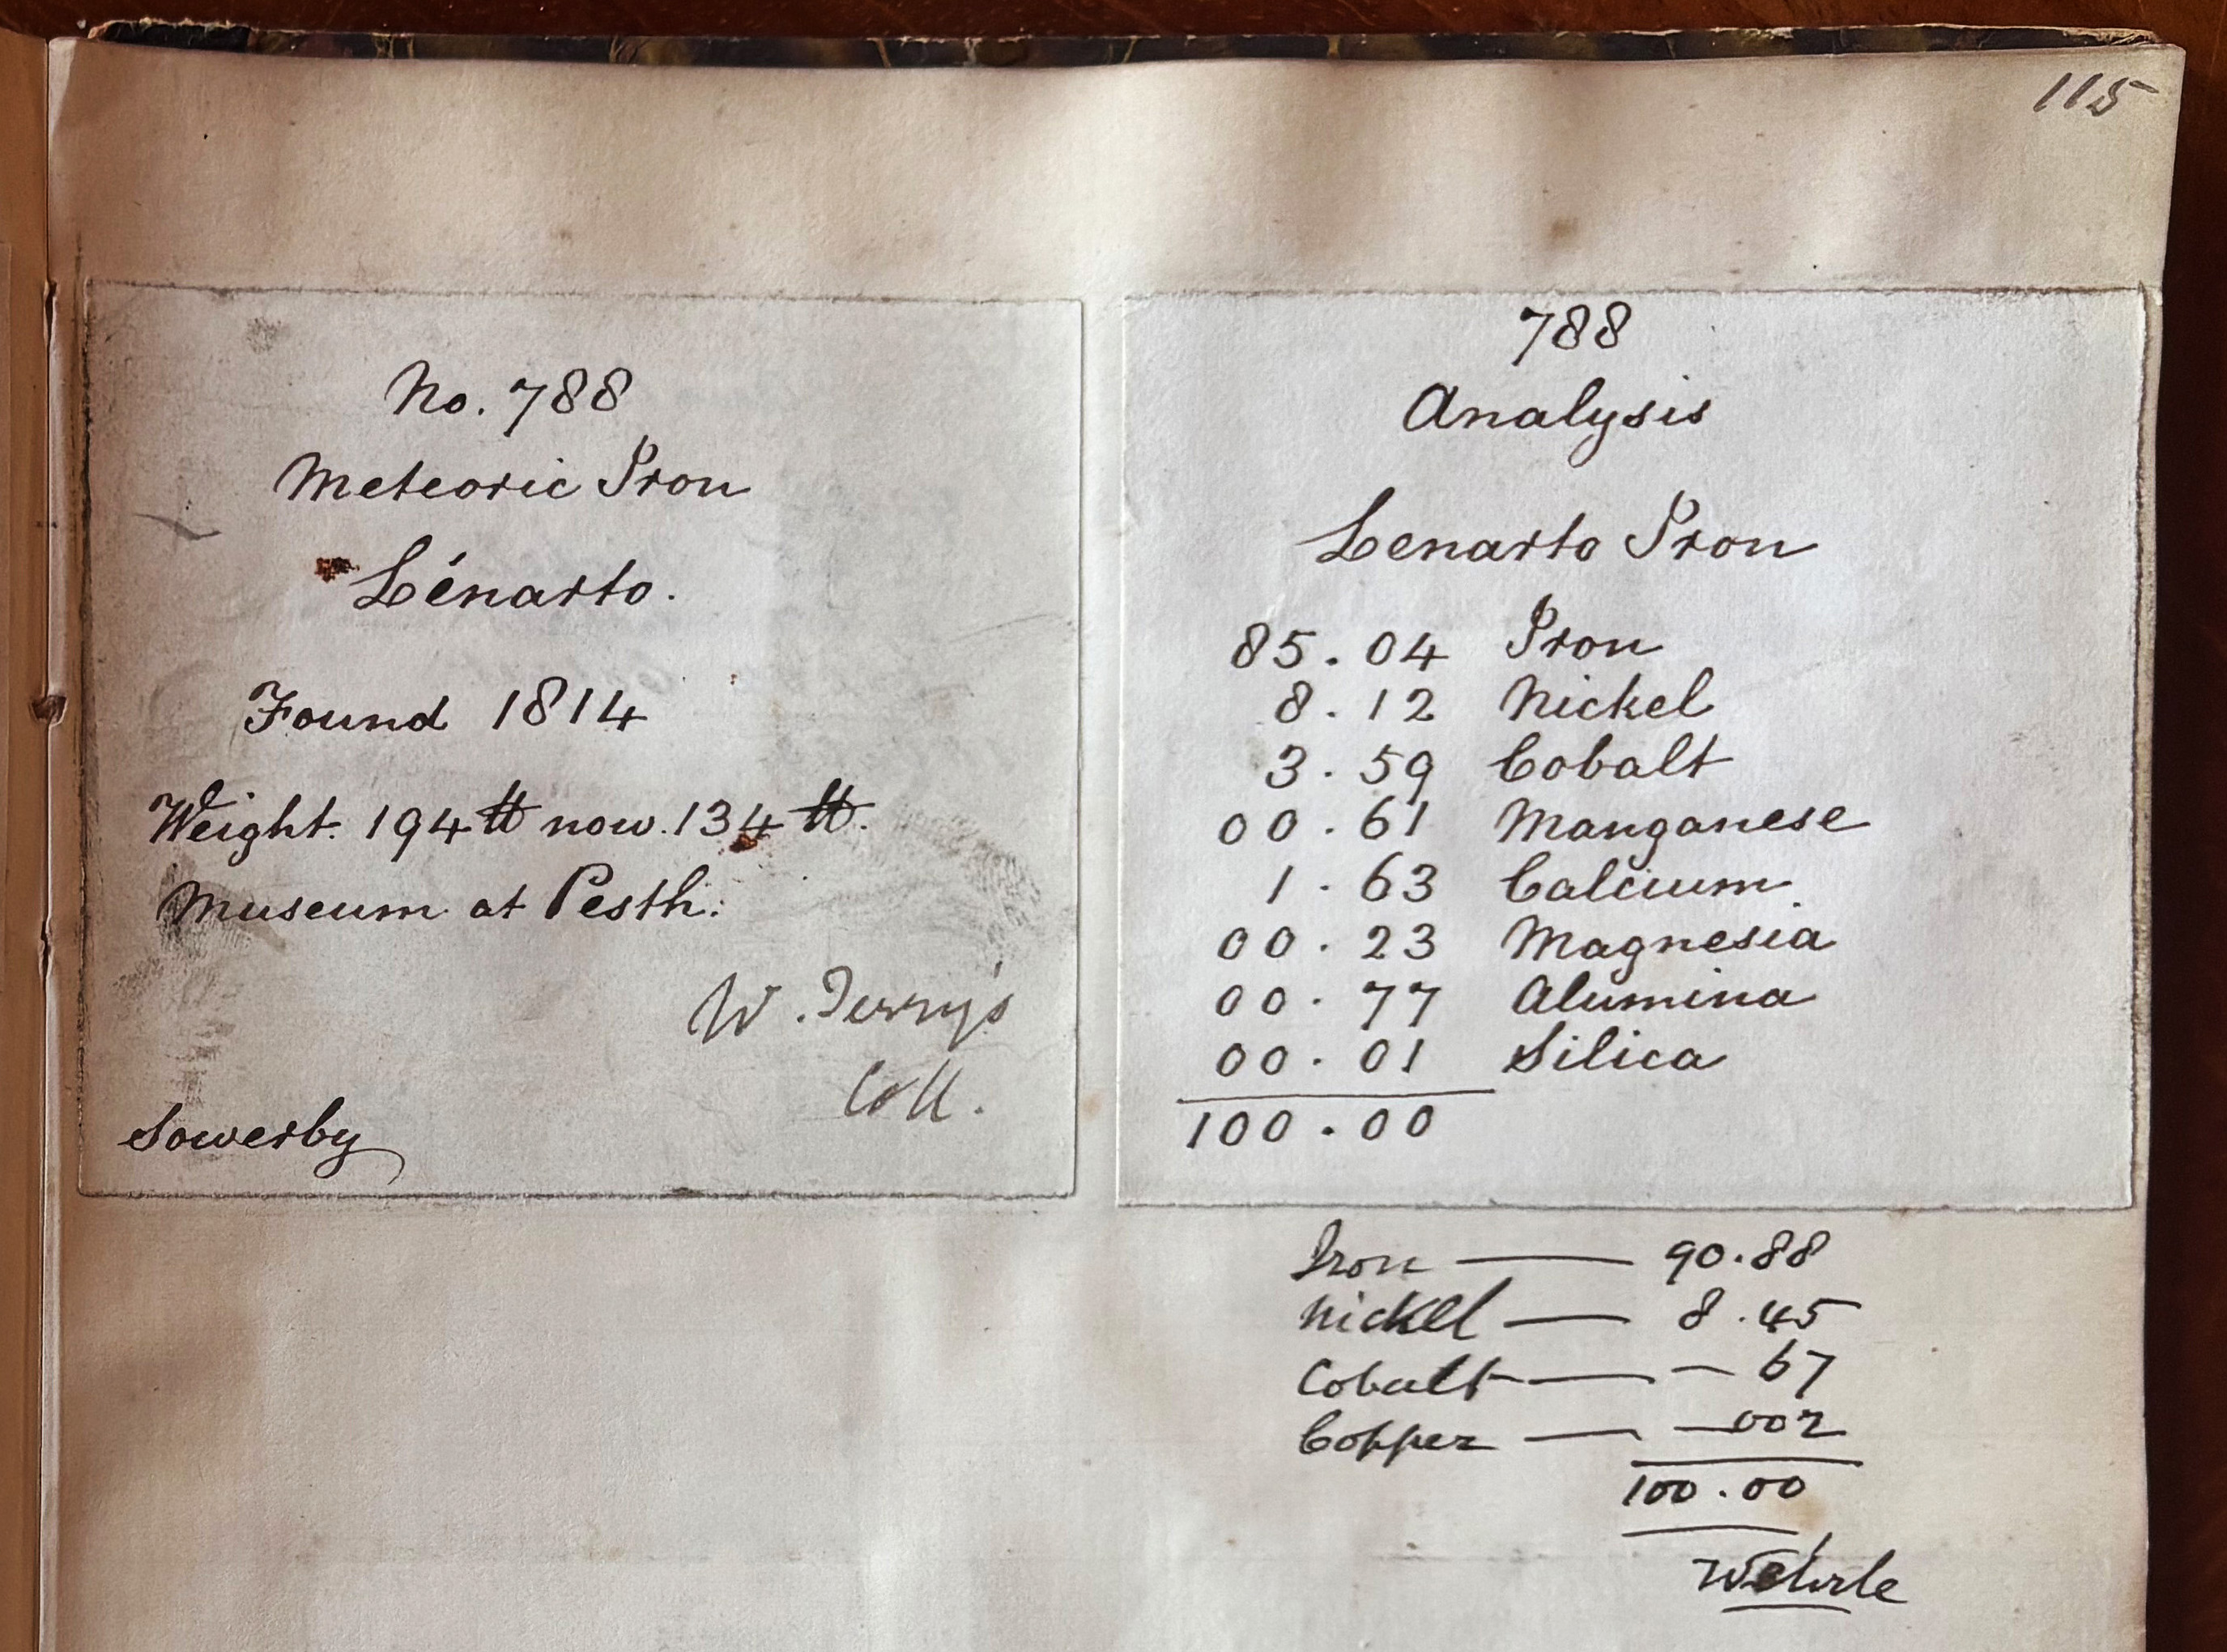 115
No. 788
Meteoric Iron
Lénarto.
Found 1814
Weight. 194 ℔ now. 134 ℔.
Museum at Pesth.
W. Terry's
Coll.
Sowerby
788
Analysis
Lenarto Iron
85.04 Iron
8.12 Nickel
3.59 Cobalt
00.61 Manganese
1.63 Calcium
00.23 Magnesia
00.77 Alumina
00.01 Silica
100.00
Iron — 90.88
Nickel — 8.45
Cobalt — — 67
Copper — — 002
100.00
Wehrle